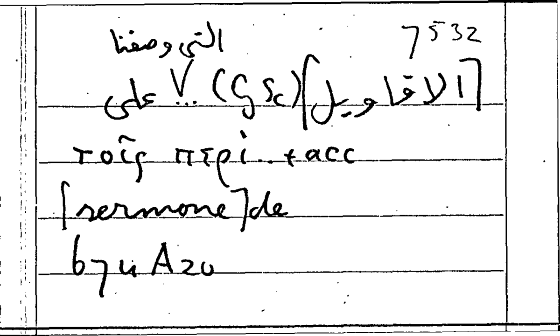 7532
التى وصفنا
[الاقاويل] (G Sc) ٧.. على
τοῖς περὶ..+acc
[sermone] de
674 A20